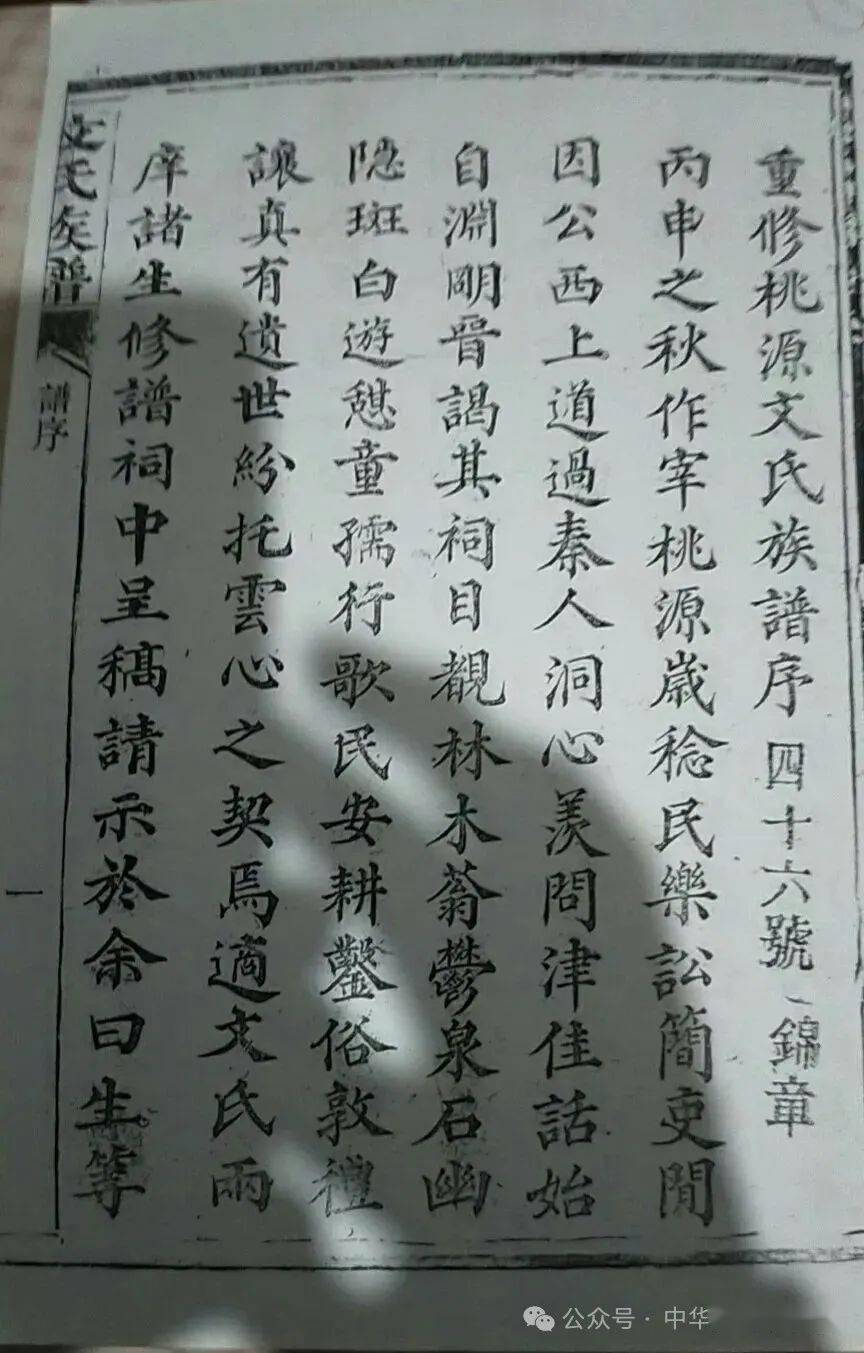 重修桃源文氏族譜序 四十六號 錦章
丙申之秋作宰桃源歲稔民樂訟簡吏閒
因公西上道過秦人洞心羨問津佳話始
自淵明晉謁其祠目覩林木蓊鬱泉石幽
隐斑白遊憇童孺行歌民安耕鑿俗敦禮
讓真有遺世紛托雲心之契焉適文氏兩
庠諸生修譜祠中呈稿請示於余曰生等
文氏族譜
譜序
一
公众号·中华